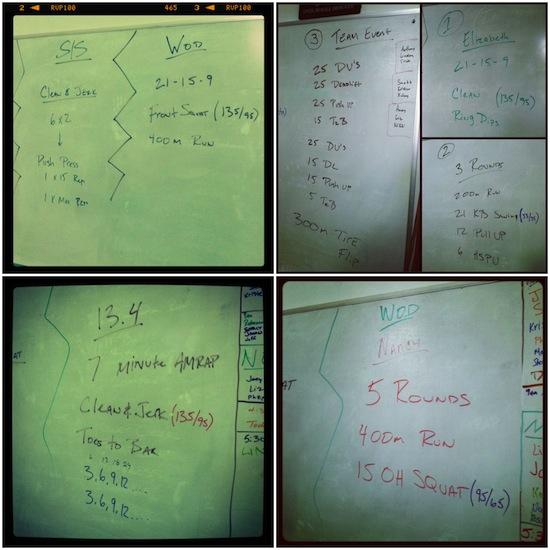 2 ◄ RVP100 465 3 ◄ RVP100
S/S
Clean & Jerk
6 x 2
↓
Push Press
1 x 15 Rep
1 x Max Rep
WOD
21-15-9
Front Squat (135/95)
400m Run
3 Team Event
25 DU's
25 Deadlift
25 Push Up
15 T2B
25 DU's
15 DL
15 Push Up
5 T2B
300m Tire
Flip
1
Elizabeth
21-15-9
Clean (135/95)
Ring Dips
2
3 Rounds
200m Run
21 KB Swing (55/35)
12 Pull Up
6 HSPU
13.4
7 minute AMRAP
Clean & Jerk (135/95)
Toes to Bar
3,6,9,12....
3,6,9,12....
AT
5:30
WOD
Nancy
5 Rounds
400m Run
15 OH Squat (95/65)
AT